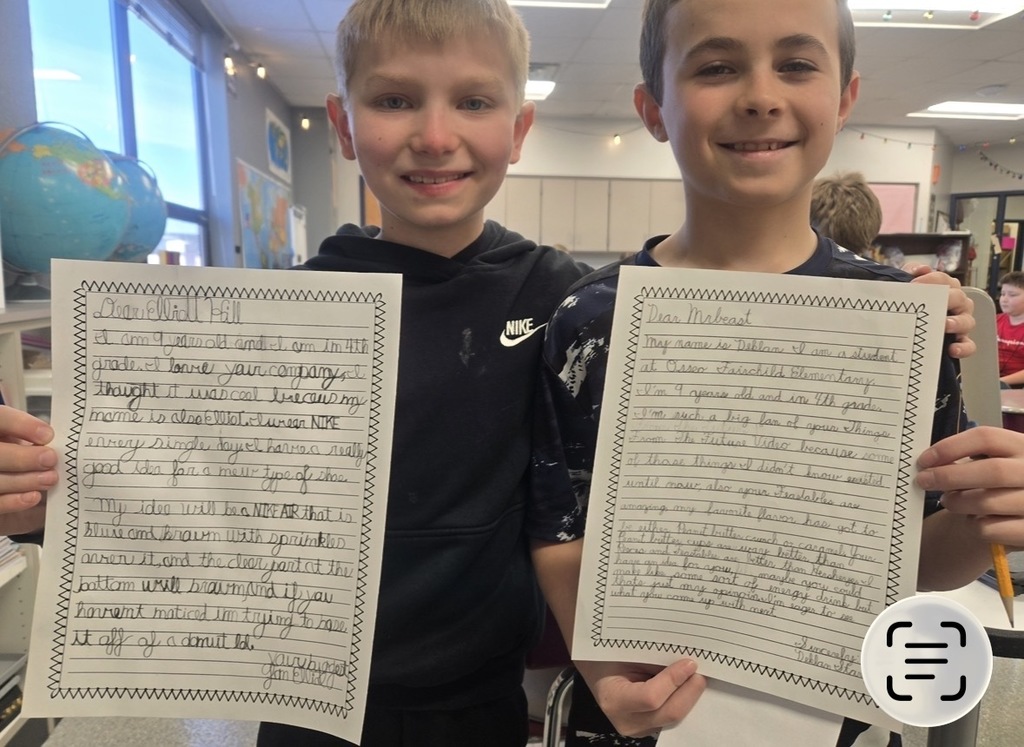 Dear Elliott Hill
I am 9 years old and I am in 4th
grade. I love your company, I
thought it was cool because my
name is also Elliot. I wear NIKE
every single day. I have a really
good idea for a new type of shoe.
My idea will be a NIKE AIR that is
blue and brown with sprinkles
over it, and the clear part at the
bottom will brown. And if you
havent noticed im trying to base
it off of a donut lol.
your biggest
fan Elliot
NIKE
Dear Mrbeast
My name is Deklan I am a student
at Osseo Fairchild Elementary.
I'm 9 years old and in 4th grade.
I'm, such a big fan of your Things
From the Future Video because some
of those things I didn't know existed
until now, also your Feastables are
amazing my favorite flavor has got to
be either Peanut butter crunch or caramel. Your
Peanut butter cups are way better than
Reeces and Feastables are better than hersheys. I
have an idea for you, maybe you could
make like some sort of energy drink but
thats just my opinion. I'm eager to see
what you come up with next.
Sincerely
Deklan